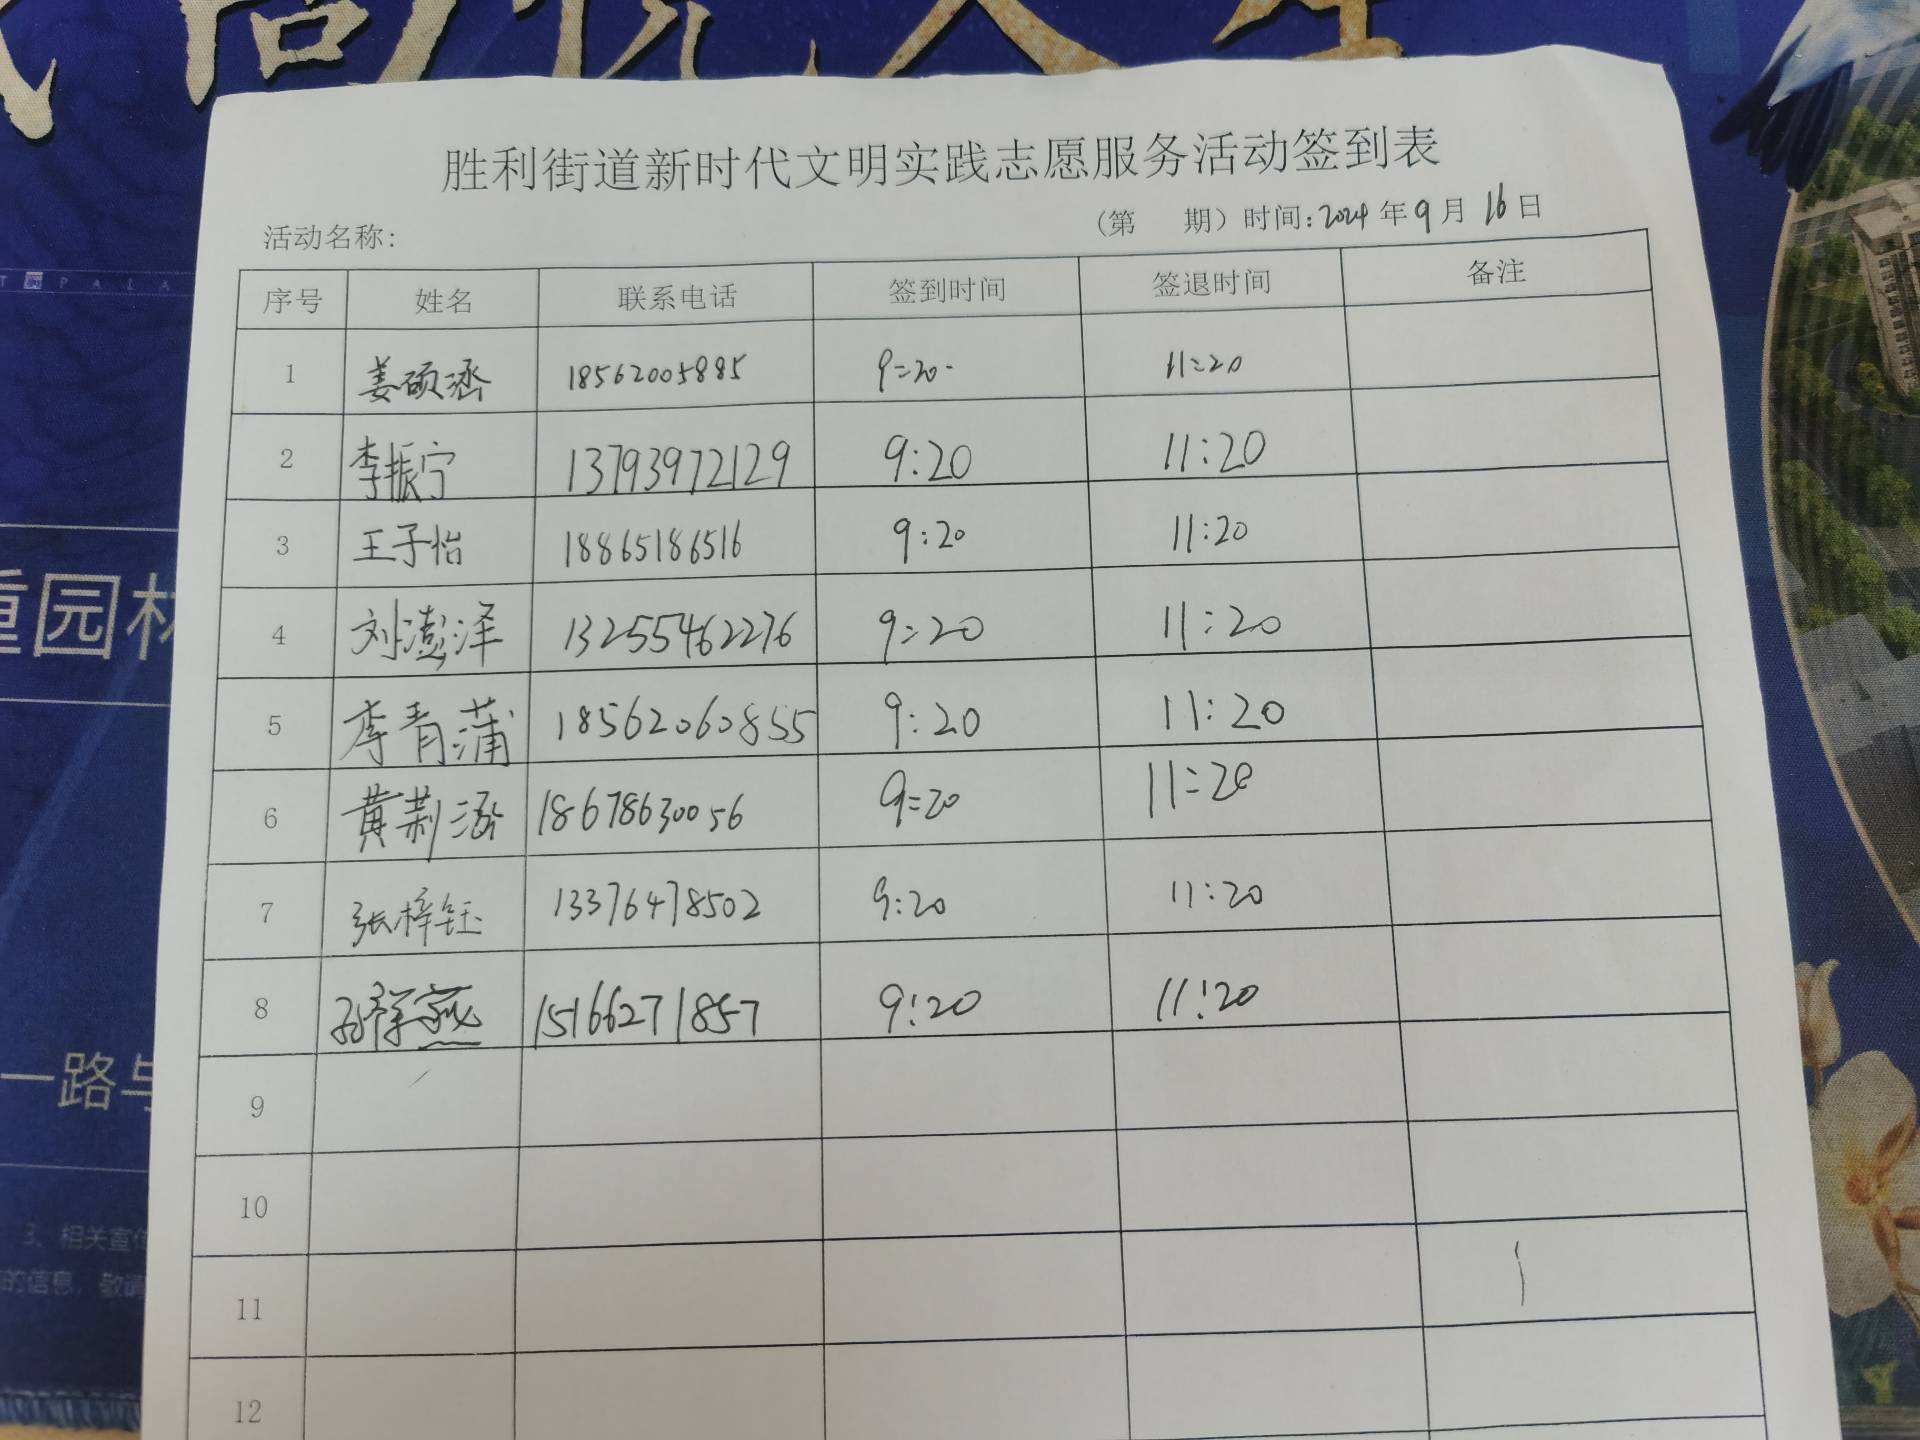 胜利街道新时代文明实践志愿服务活动签到表
活动名称: (第 期) 时间: 2024 年 9 月 16 日
序号 姓名 联系电话 签到时间 签退时间 备注
1 姜硕涵 18562005885 9:20 11:20
2 李振宁 13793972129 9:20 11:20
3 王子怡 18865186516 9:20 11:20
4 刘澎泽 13255462276 9:20 11:20
5 李青蒲 18562060855 9:20 11:20
6 黄荆涵 18678630056 9:20 11:20
7 张梓钰 13376478502 9:20 11:20
8 15166271857 9:20 11:20
9
10
11
12
重园林
一路与
3、相关宣传
的信息，敬请